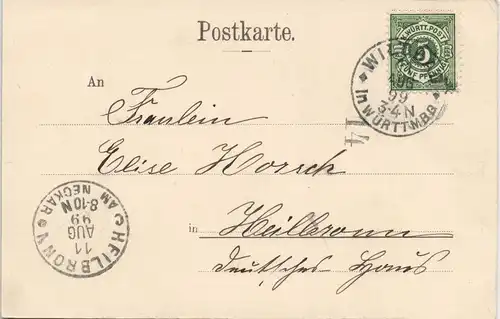 Postkarte.
K. WÜRTT. POST
5
FÜNF PFENNIG
99
3-4 N
In WÜRTTMBG
An
Fraulein
14
Elise Horsch
in Heilbronn
deutsches Haus
HEILBRONN
AM NECKAR
11
AUG
99
8-10 N